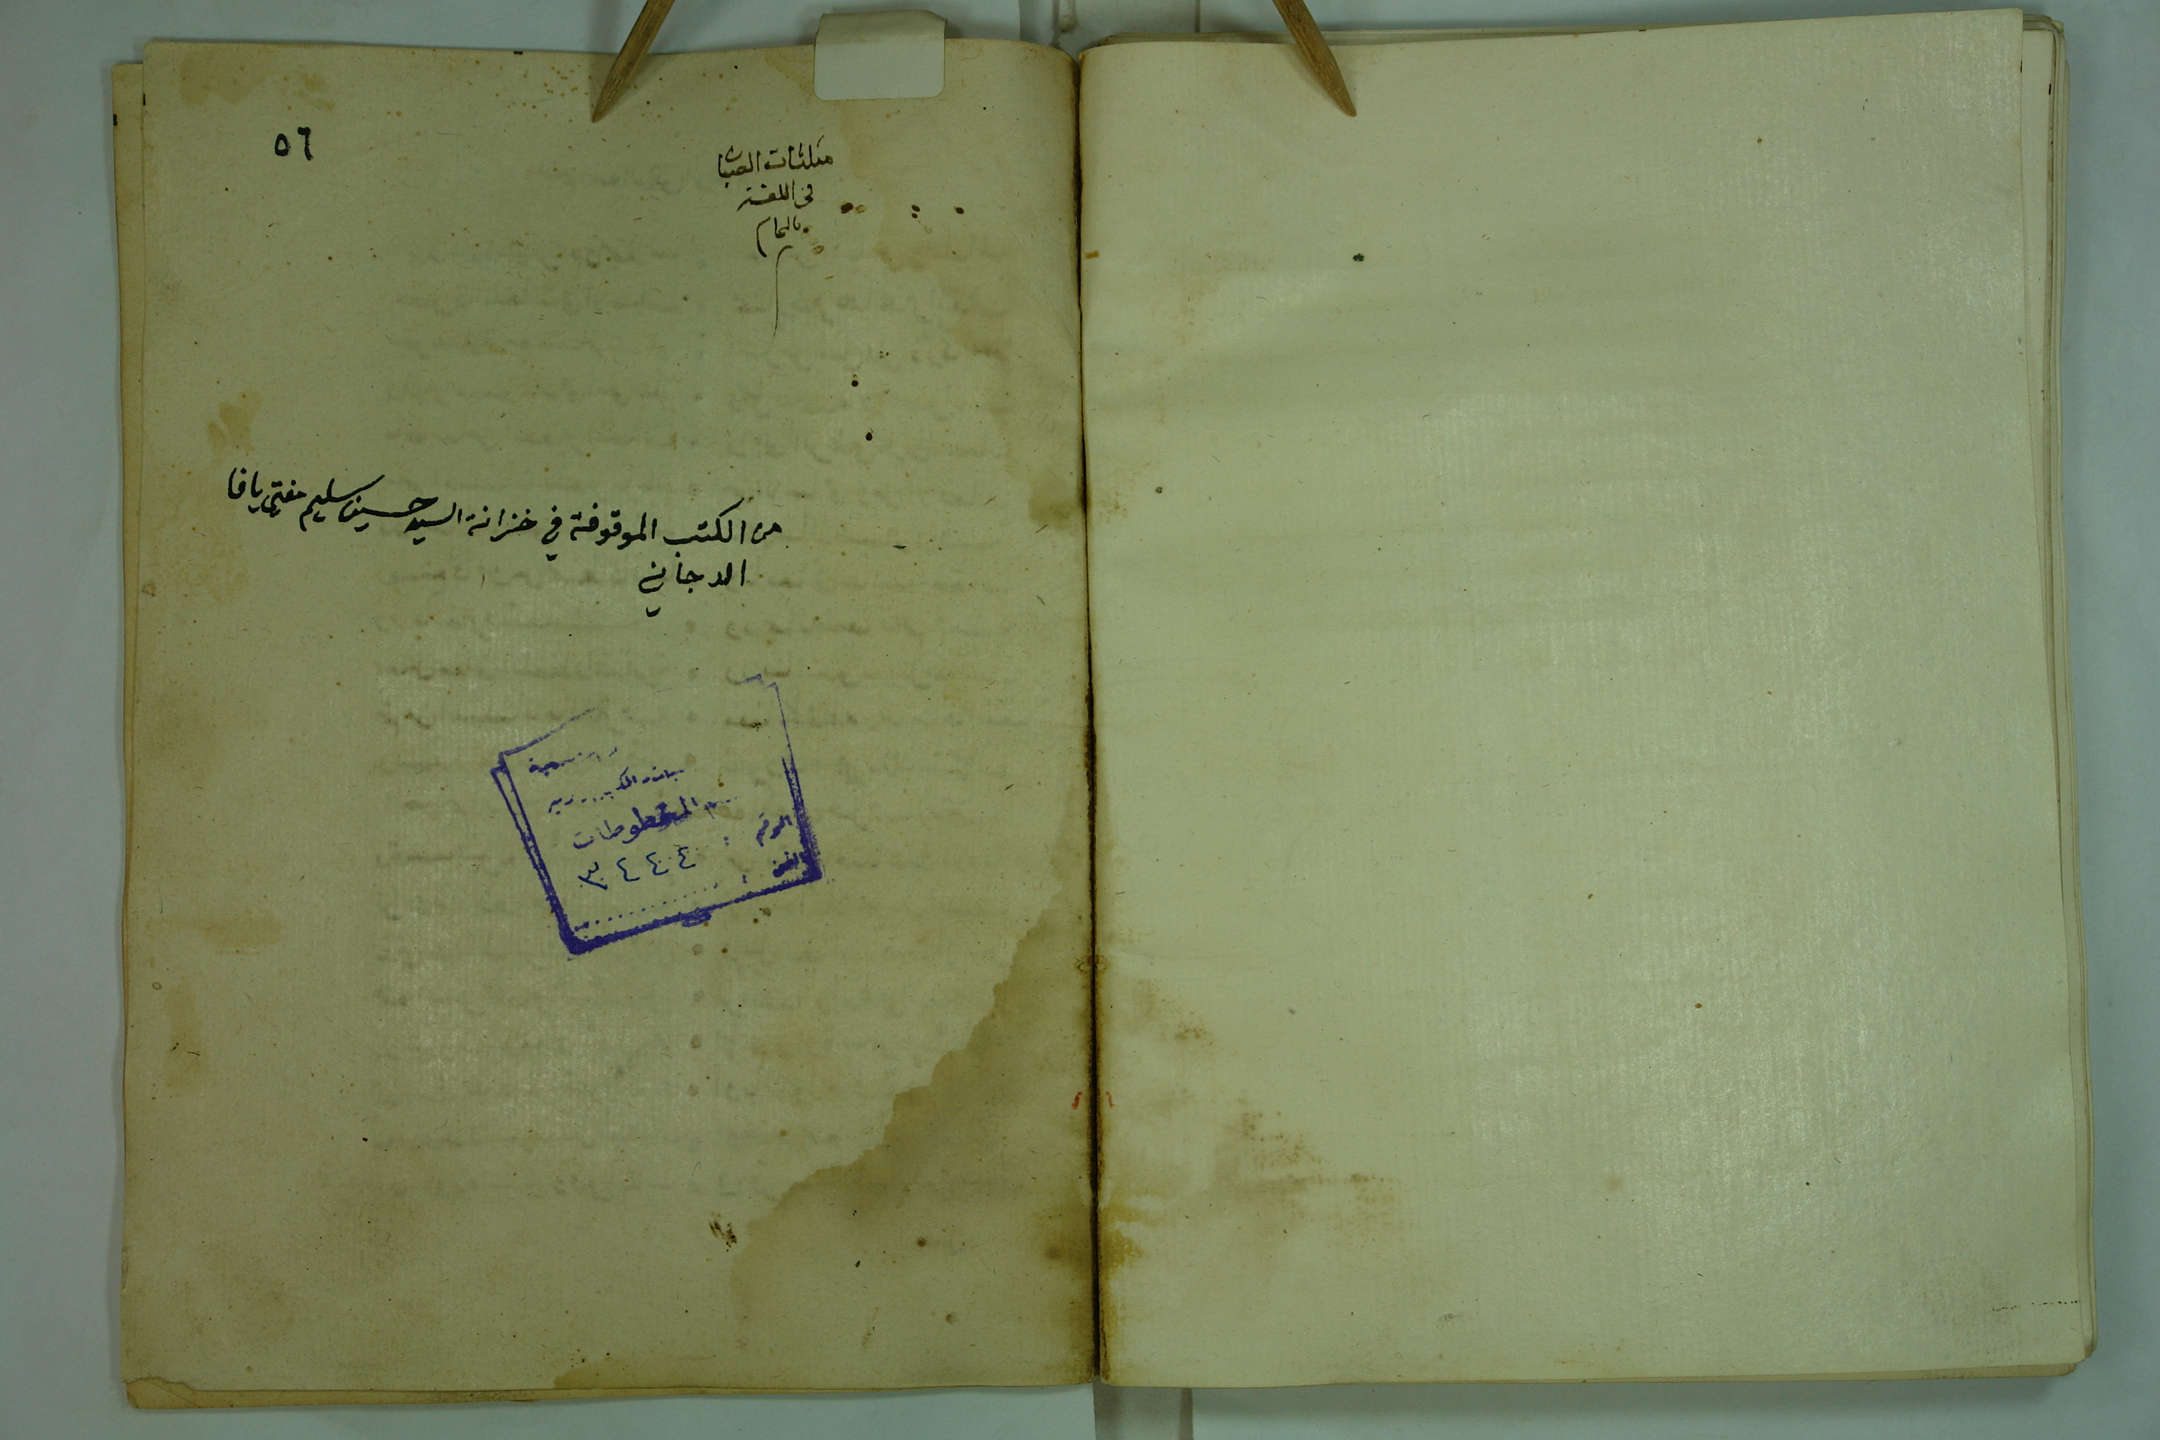 ٥٦
مثلثات الصبان
في اللغة
بالتمام
من الكتب الموقوفة في خزانة السيد حسين سليم مفتي يافا
الدجاني
المخطوطات
الرقم : ٣٤٤٤
الفن :